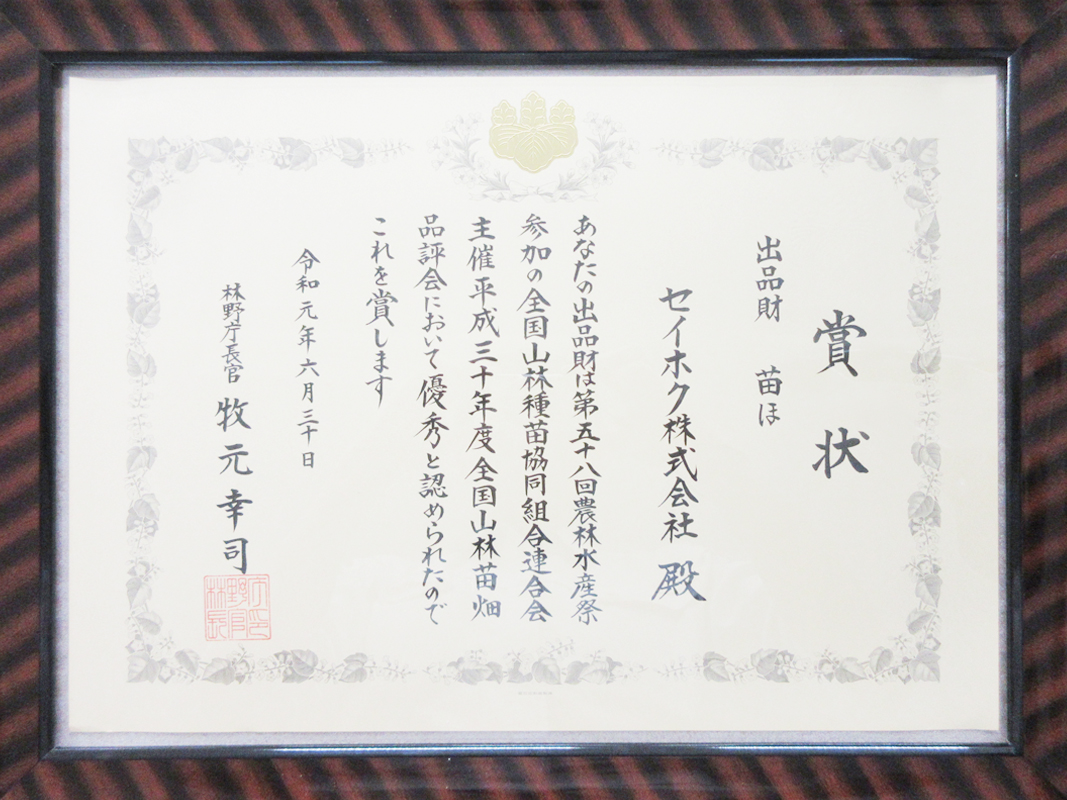 賞状
出品財 苗ほ
セイホク株式会社 殿
あなたの出品財は第五十八回農林水産祭
参加の全国山林種苗協同組合連合会
主催平成三十年度全国山林苗畑
品評会において優秀と認められたので
これを賞します
令和元年六月三十日
林野庁長官 牧元幸司